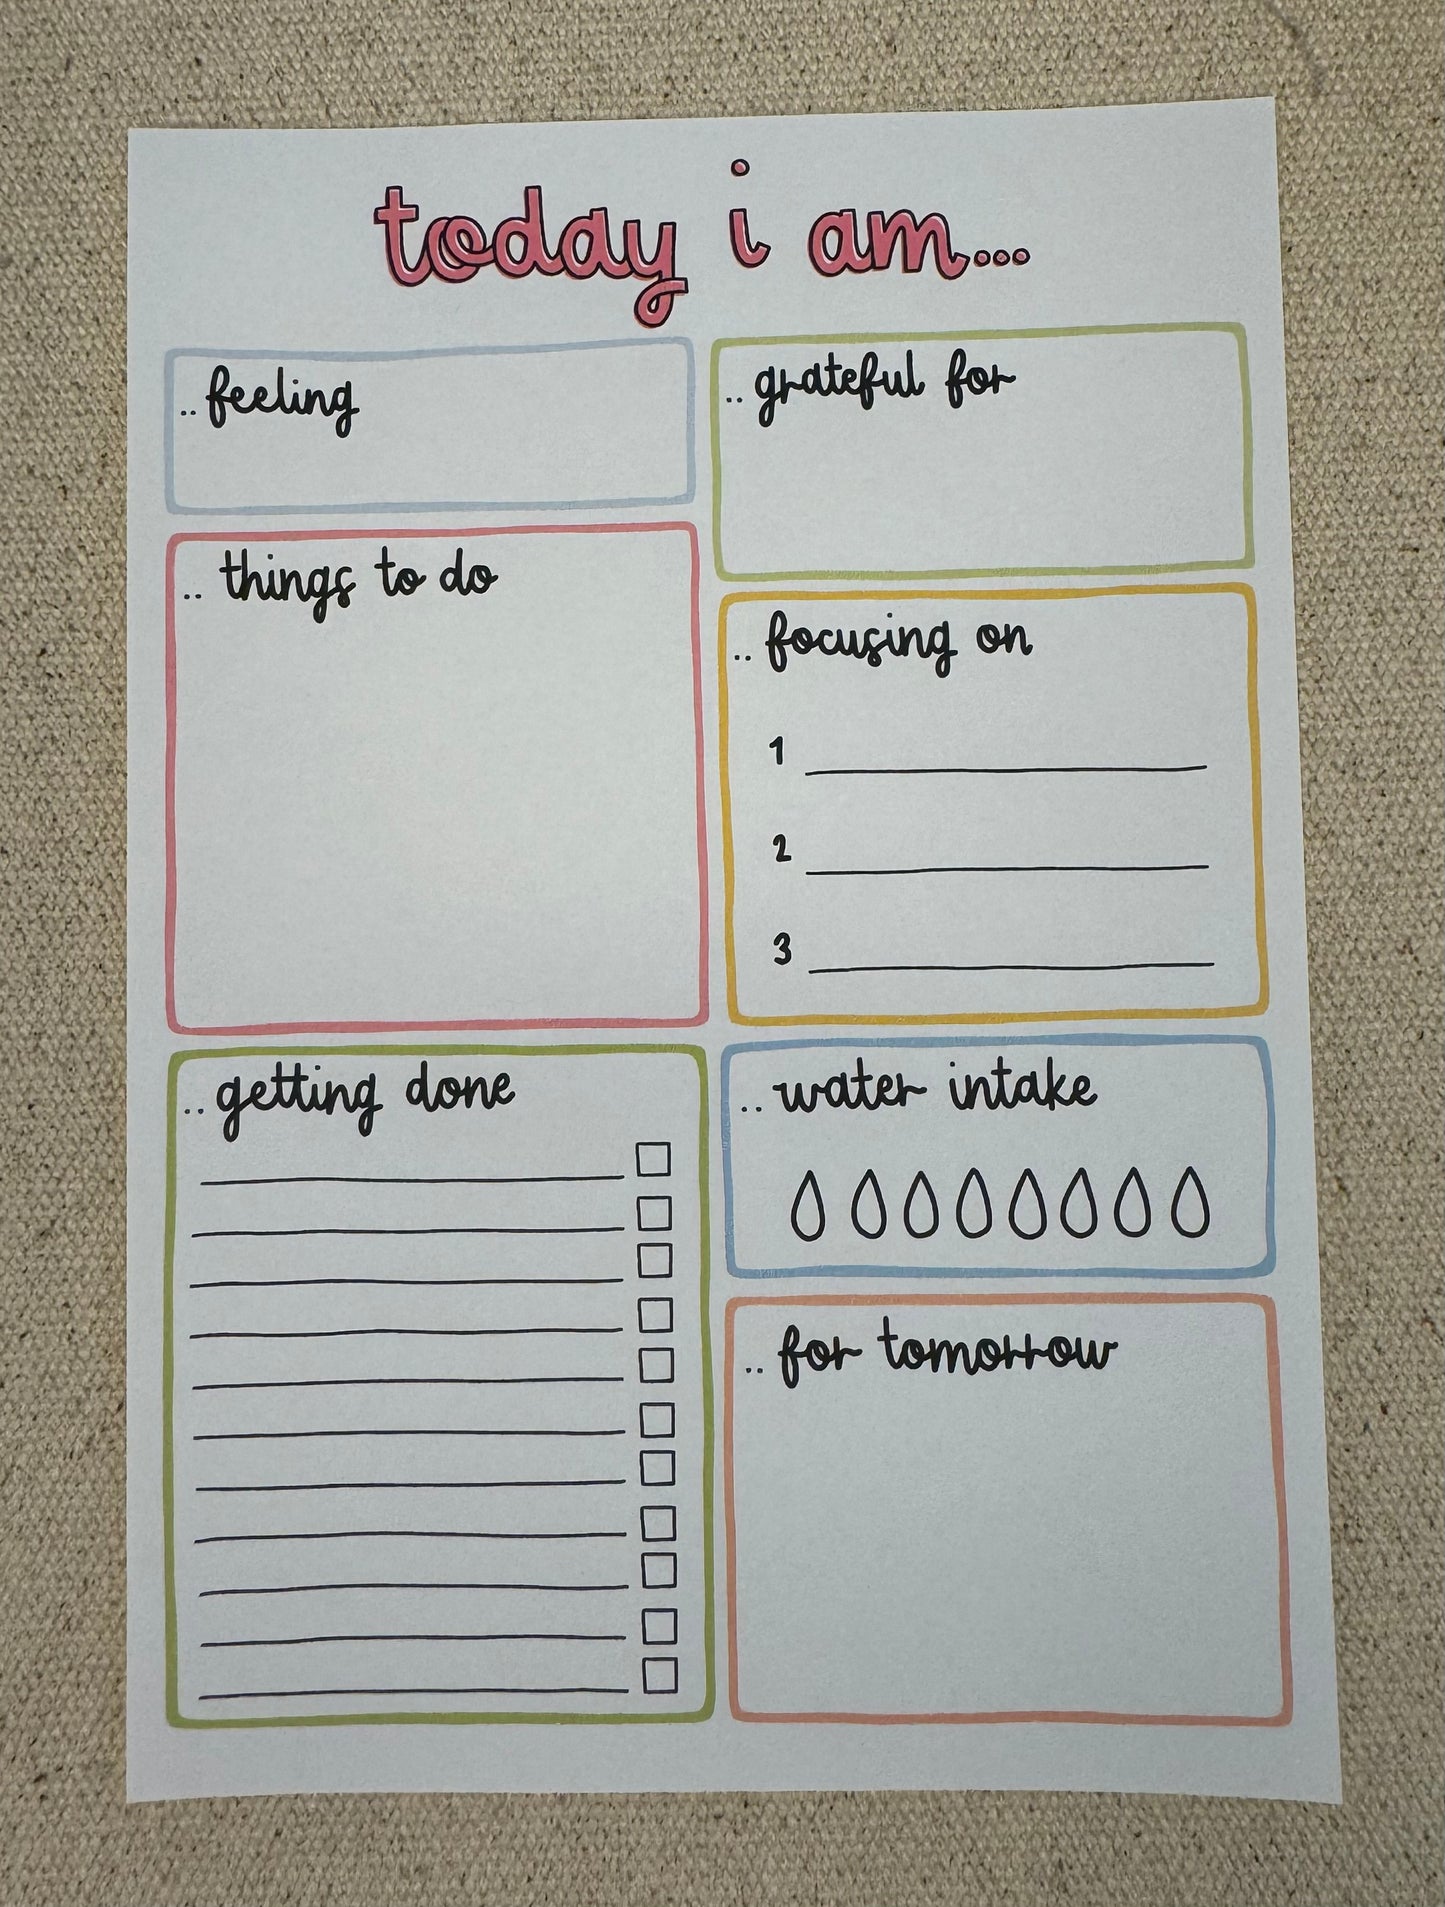 today i am...
.. feeling
.. grateful for
.. things to do
.. focusing on
1
2
3
.. getting done
.. water intake
.. for tomorrow